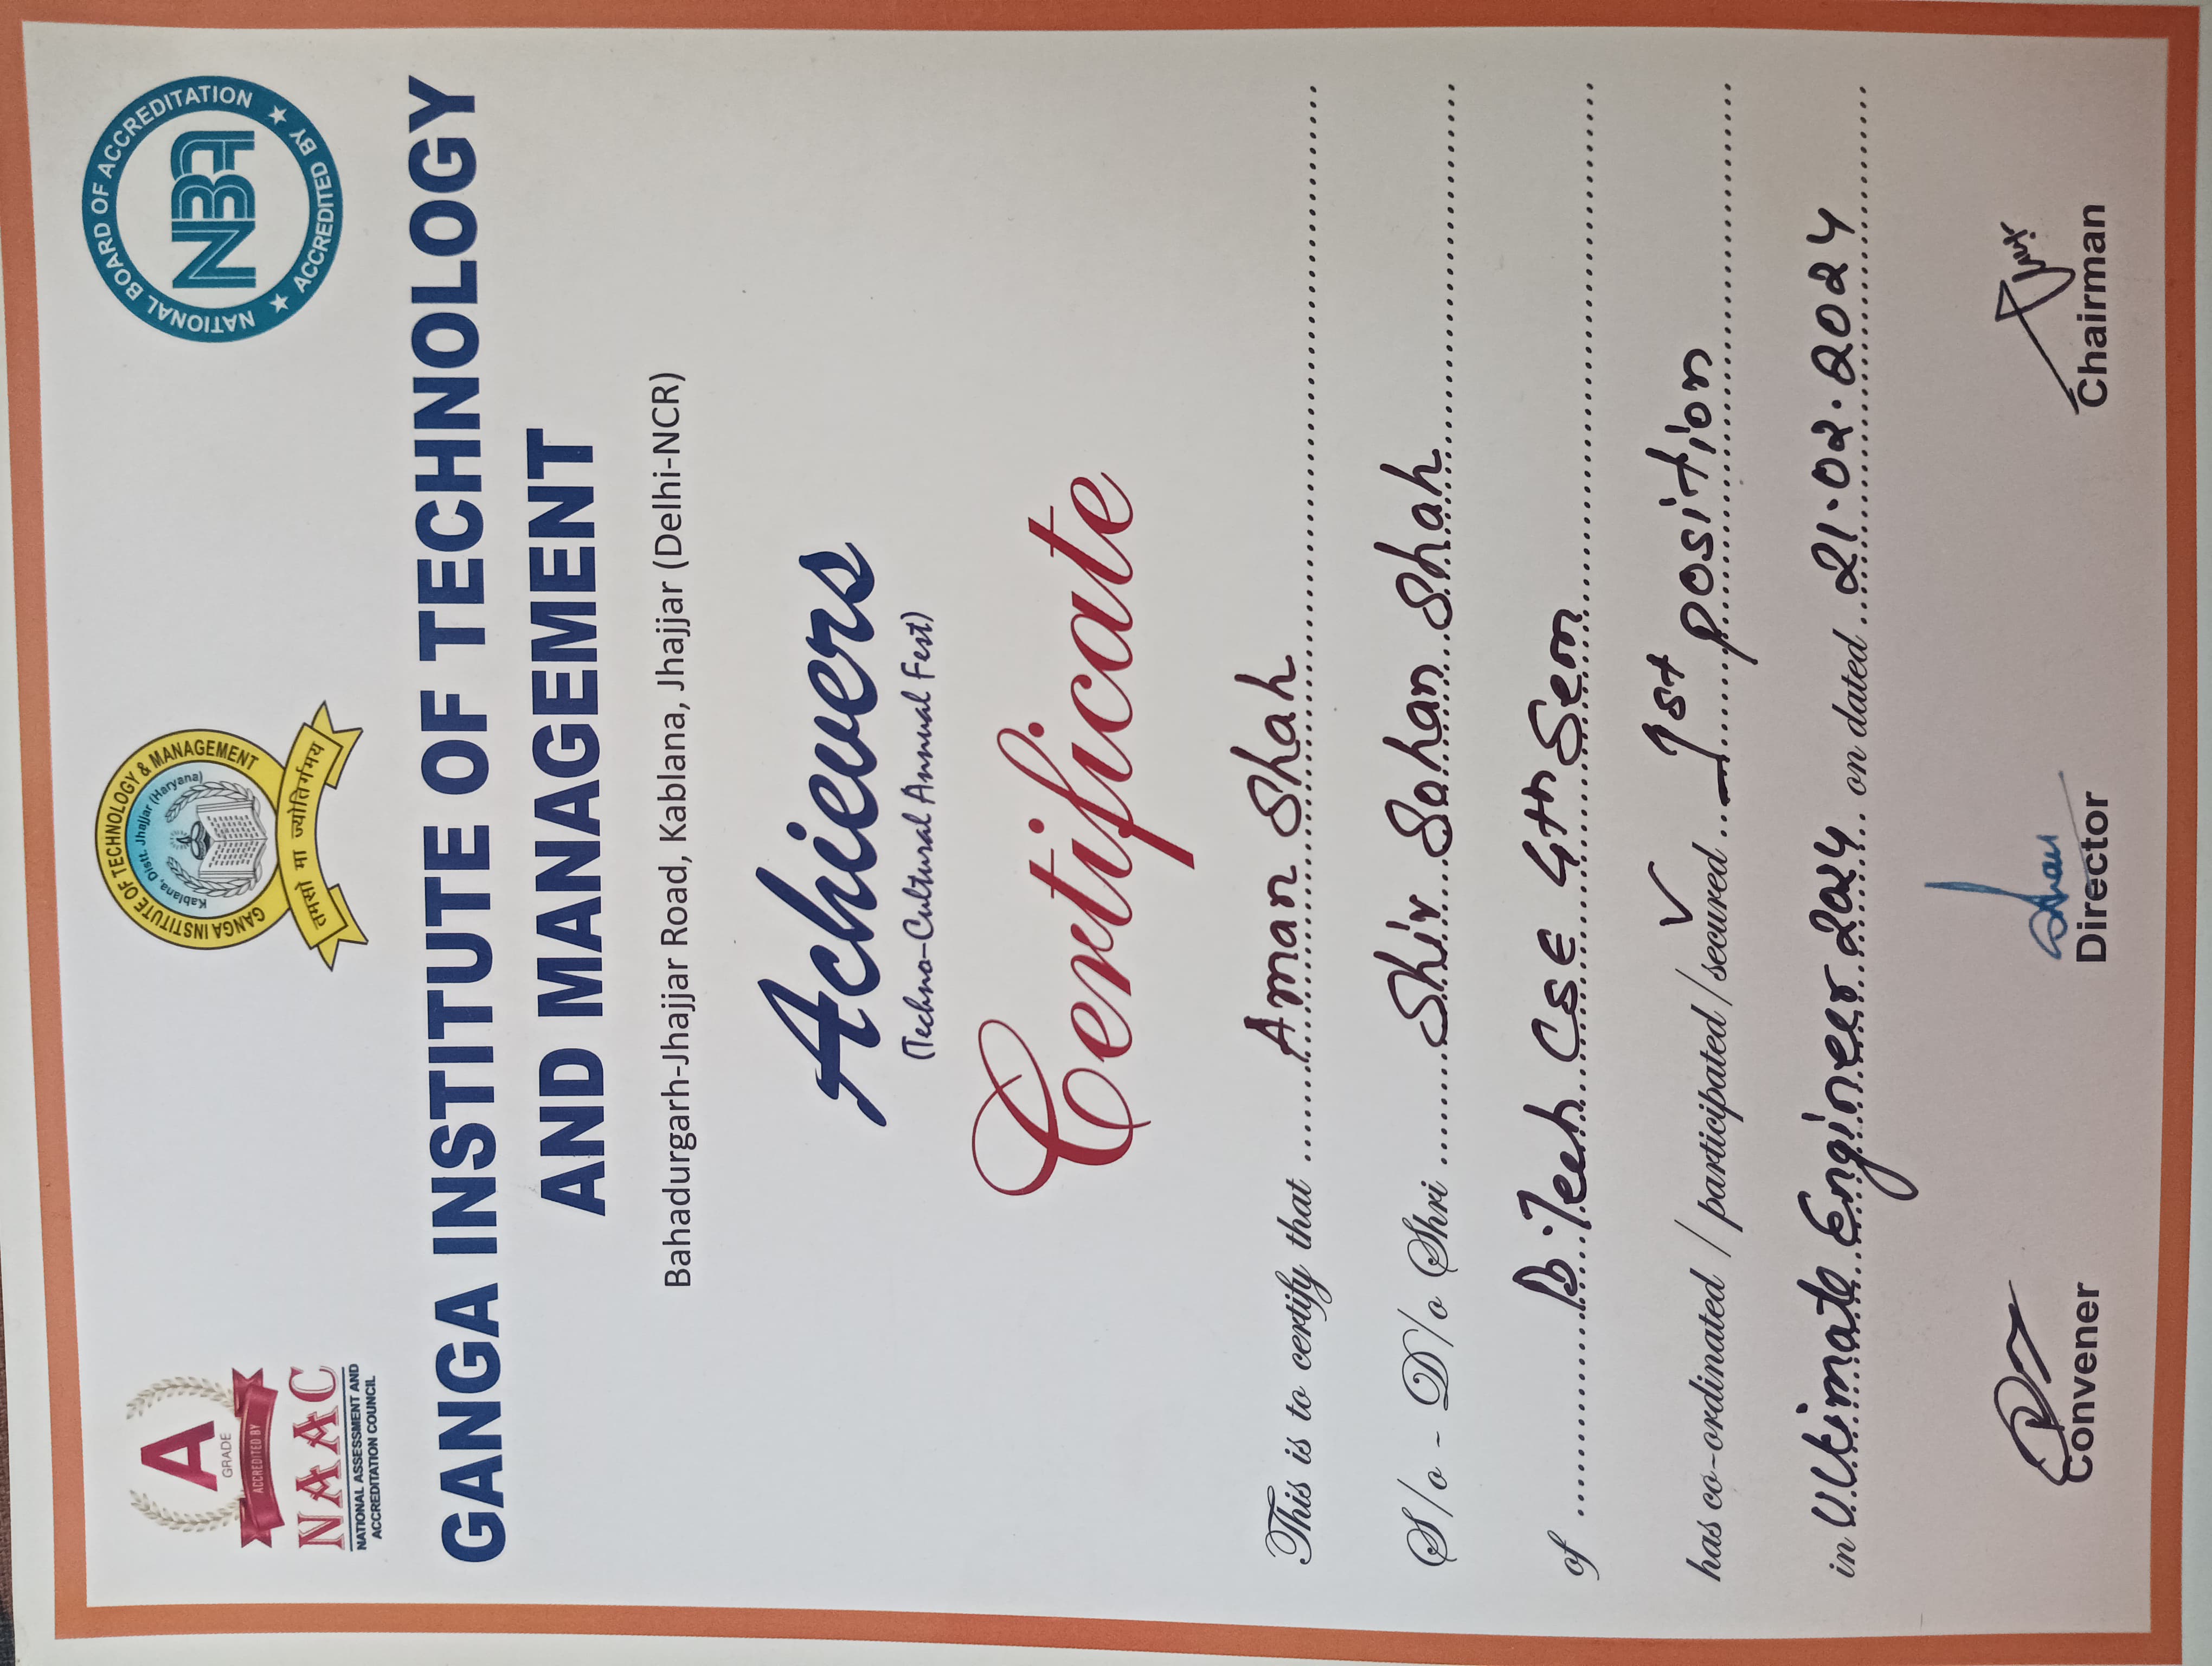 A
GRADE
ACCREDITED BY
NAAC
NATIONAL ASSESSMENT AND
ACCREDITATION COUNCIL
GANGA INSTITUTE OF TECHNOLOGY & MANAGEMENT
Kablana, Distt. Jhajjar (Haryana)
तमसो मा ज्योतिर्गमय
NATIONAL BOARD OF ACCREDITATION
NBA
★ ACCREDITED BY ★
GANGA INSTITUTE OF TECHNOLOGY
AND MANAGEMENT
Bahadurgarh-Jhajjar Road, Kablana, Jhajjar (Delhi-NCR)
Achievers
(Techno-Cultural Annual Fest)
Certificate
This is to certify that Aman Shah
S/o - D/o Shri Shiv Sohan Shah
of B.Tech CSE 4th Sem
has co-ordinated / participated / secured 1st position
in Ultimate Engineer 2024 on dated 21.02.2024
Convener Director Chairman